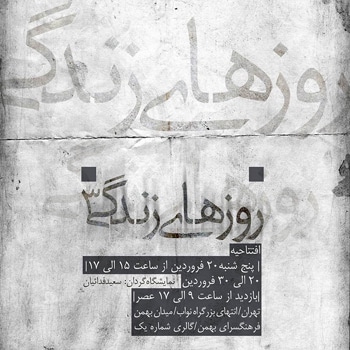 روزهای زندگی
روزهای زندگی ۳
افتتاحیه
| پنج شنبه ۲۰ فروردین از ساعت ۱۵ الی ۱۷|
۲۰ الی ۳۰ فروردین | نمایشگاه‌گردان: سعیدفدائیان
|بازدید از ساعت ۹ الی ۱۷ عصر|
تهران/انتهای بزرگراه نواب/میدان بهمن
فرهنگسرای بهمن/گالری شماره یک